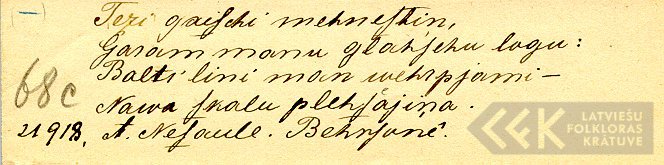 Tezi gaischi mehneſtin,
Garam manu glahschu logu:
Balti lini man wehrpjami —
Nawa ſkalu plehſājiņa.
68c
21918, A. Neſaule. Behrſonē.
LATVIEŠU
FOLKLORAS
KRĀTUVE